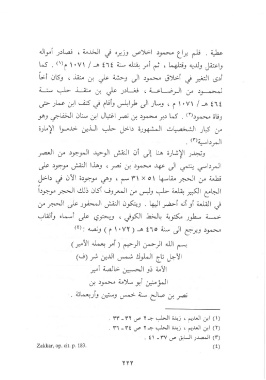 عطية . فلم يراع محمود اخلاص وزيره في الخدمة ، فصادر أمواله
واعتقل ولديه وقتلهما ، ثم أمر بقتله سنة ٤٦٤ هـ / ١٠٧١ م(١) . كما
أدى التغير في أخلاق محمود الى وحشة علي بن منقذ ، وكان أخاً
لمحمود من الرضاعة ، فغادر علي بن منقذ حلب سنة
٤٦٤ هـ / ١٠٧١ م ، وسار الى طرابلس وأقام في كنف ابن عمار حتى
وفاة محمود(٢) . كما دبر محمود بن نصر اغتيال ابن سنان الخفاجي وهو
من كبار الشخصيات المشهورة داخل حلب الذين خدموا الإمارة
المرداسية(٣) .
وتجدر الإشارة هنا إلى أن النقش الوحيد الموجود من العصر
المرداسي ينتمي الى عهد محمود بن نصر ، وهذا النقش موجود على
قطعة من الحجر مقاسها ٥١ × ٣١ سم ، وهي موجودة الآن في داخل
الجامع الكبير بقلعة حلب وليس من المعروف كان ذلك الحجر موجوداً
في القلعة أو أنه أحضر اليها . ويتكون النقش المحفور على الحجر من
خمسة سطور مكتوبة بالخط الكوفي ، ويحتوي على أسماء وألقاب
محمود ويرجع الى سنة ٤٦٥ هـ (١٠٧٢ م) ونصه :(٤)
بسم الله الرحمن الرحيم (أمر بعمله الأمير)
الأجل تاج الملوك شمس الدين شر (ف)
الأمة ذو الحسبين خالصة أمير
المؤمنين أبو سلامة محمود بن
نصر بن صالح سنة خمس وستين وأربعمائة .
(١) ابن العديم ، زبدة الحلب جـ ٢ ص ٣٢ - ٣٣ .
(٢) ابن العديم ، زبدة الحلب جـ ٢ ص ٣٤ - ٣٦ .
(٣) المصدر السابق ص ٣٧ - ٤١ .
(٤) Zakkar, op. cit p. 183.
٢٢٢